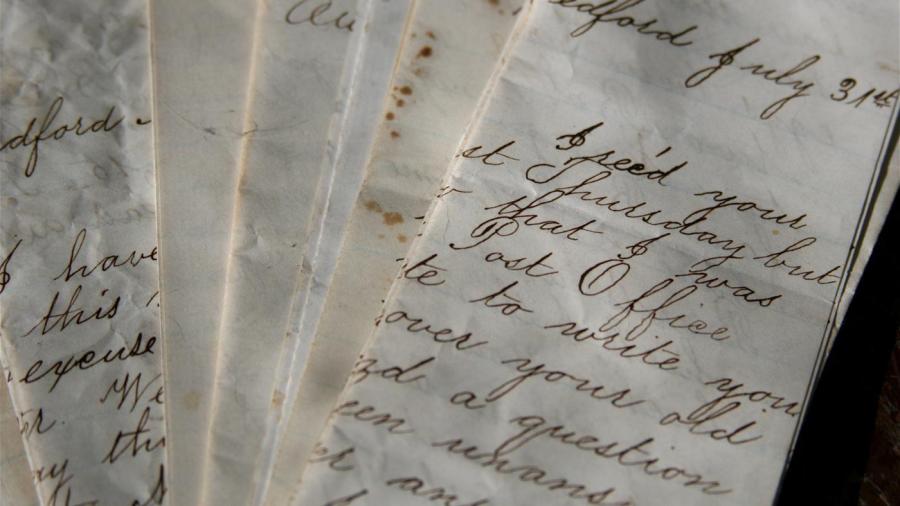 dford
I have
this
excuse
We
edford July 31st
I rec'd your
st Thursday but
that I was
Post Office
te to write you
over your old
a question
een unans
an